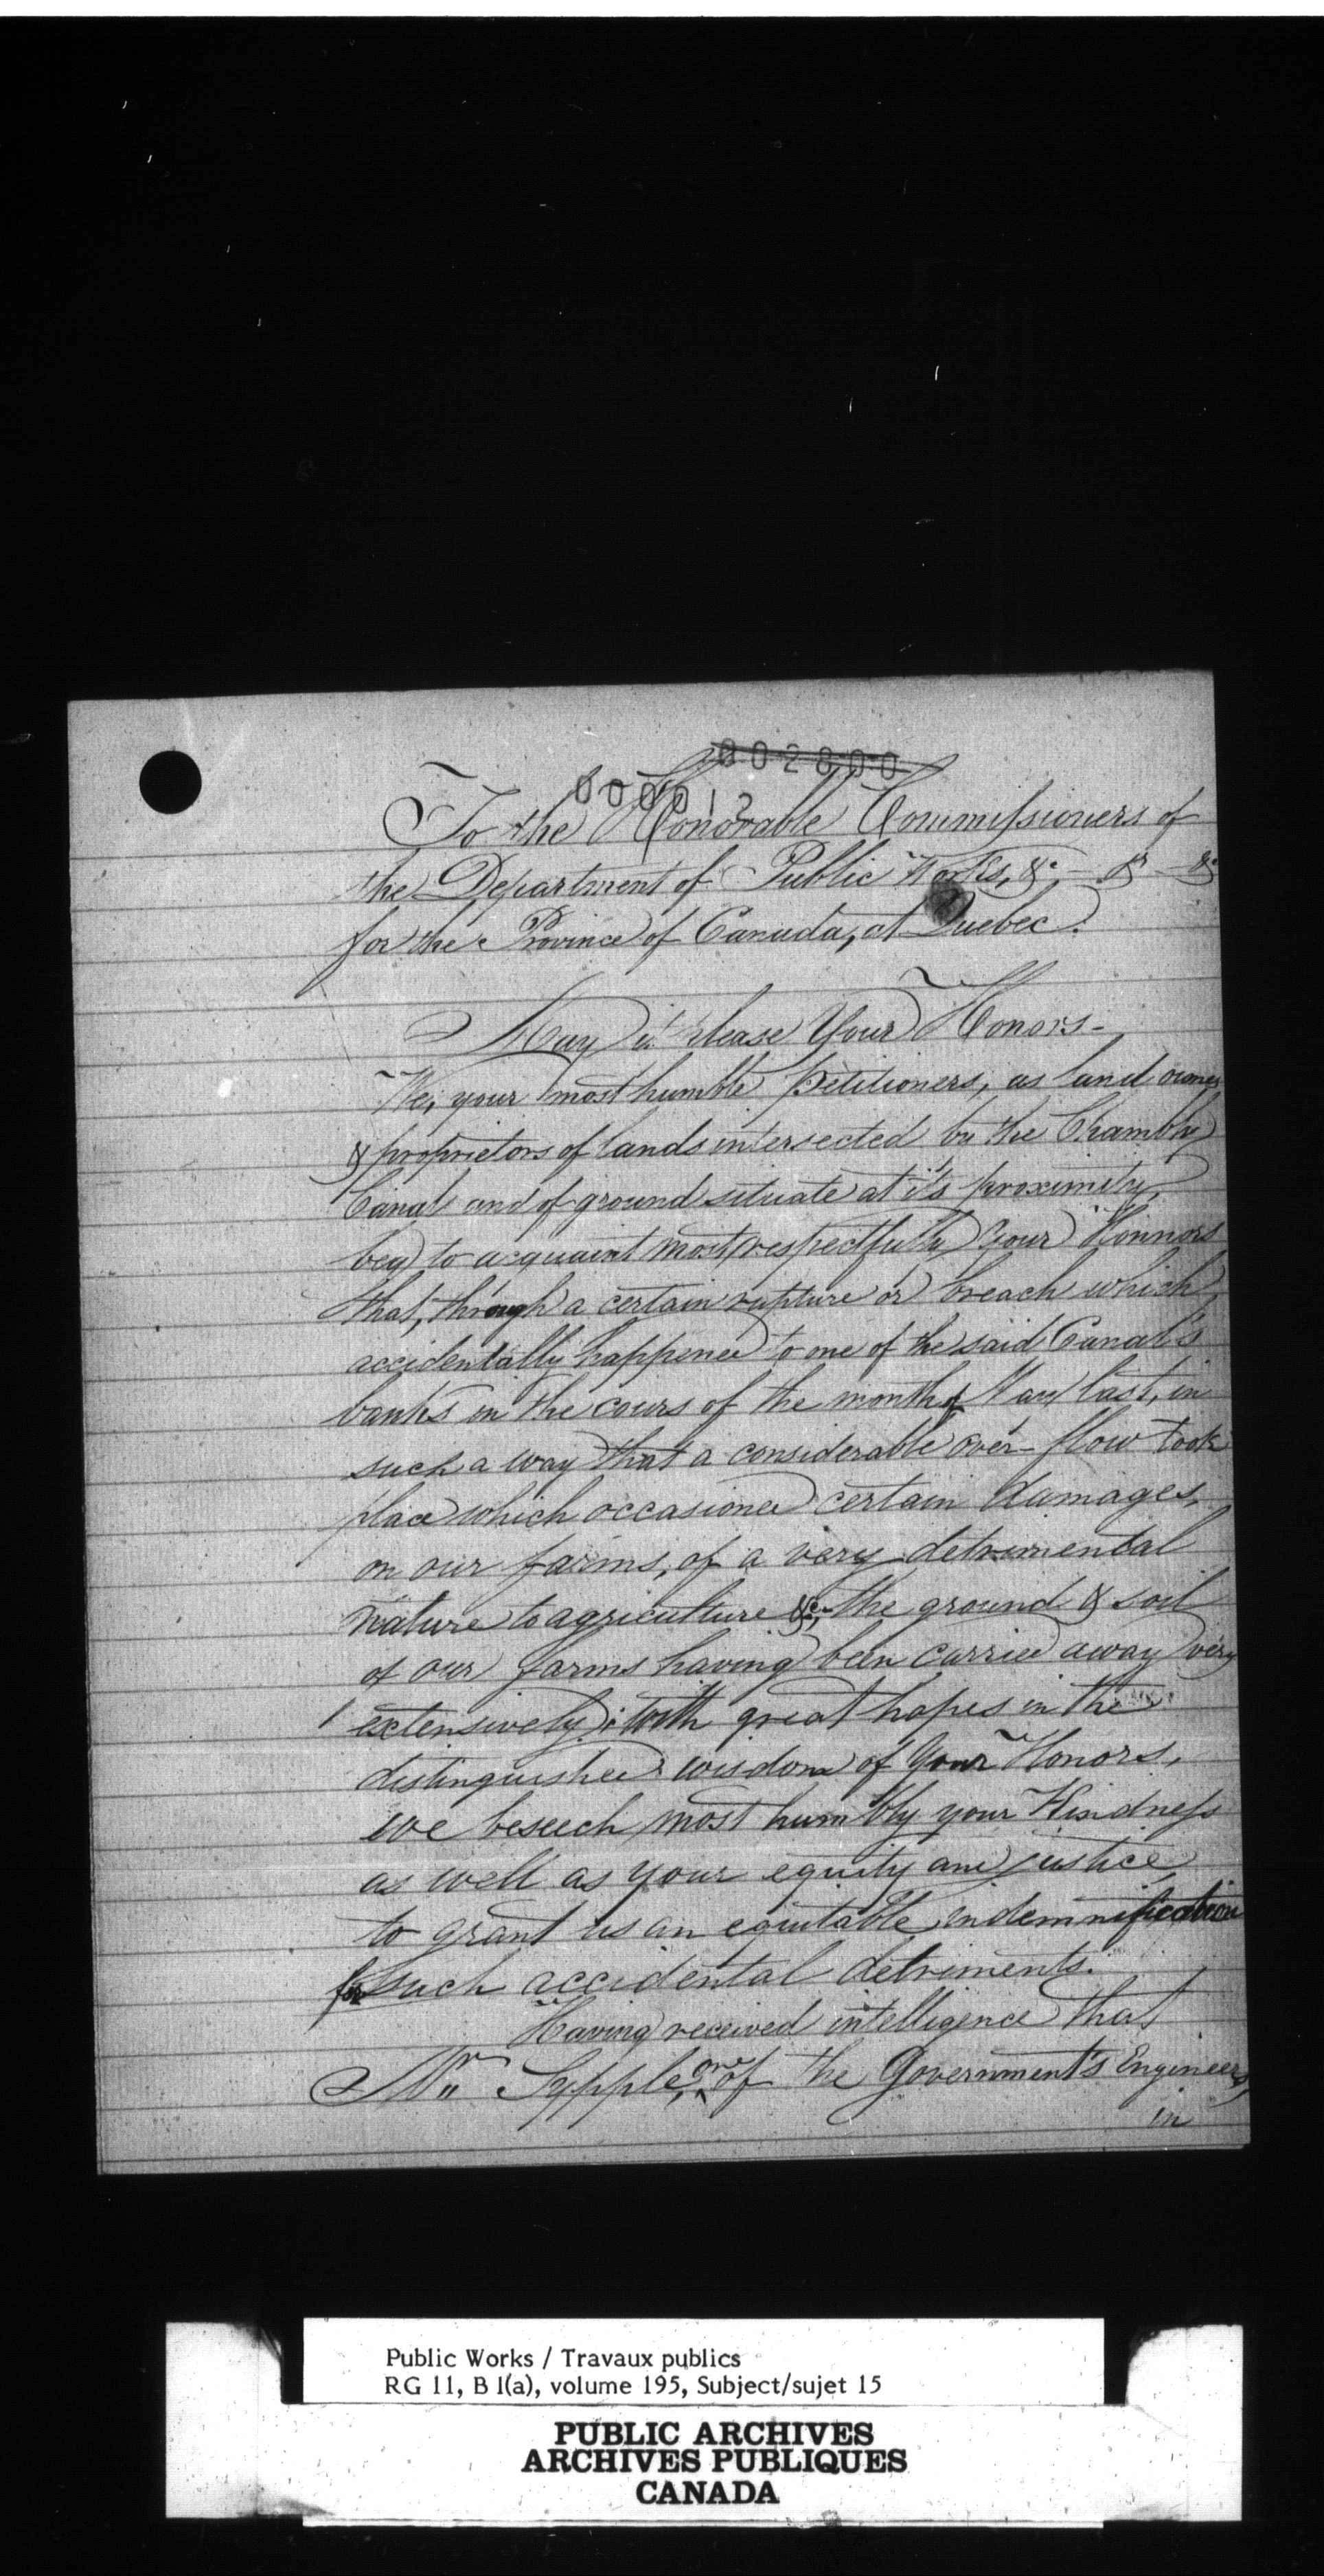 002800
000012
To the Honorable Commissioners of
the Department of Public Works, &c - & - &c
for the Province of Canada, at Quebec.
May it Please Your Honors -
We, your most humble Petitioners, as land owners
& proprietors of lands intersected by the Chambly
Canal and of ground situate at it's proximity,
beg to acquaint most respectfully Your Honnors
that, through a certain rupture or breach which
accidentally happened to one of the said Canal's
banks in the cours of the month of May last, in
such a way that a considerable over-flow took
place which occasioned certain damages,
on our farms, of a very detrimental
nature to agriculture &c, the ground & soil
of our farms having been carried away very
extensively; with great hopes in the
distinguished wisdom of Your Honors,
we beseech most humbly your Kindness
as well as your equity and justice
to grant us an equitable indemnification
for such accidental detriments.
Having received intelligence that
Mr. Sypple, one of the Government's Engineers,
in
Public Works / Travaux publics
RG 11, B 1(a), volume 195, Subject/sujet 15
PUBLIC ARCHIVES
ARCHIVES PUBLIQUES
CANADA